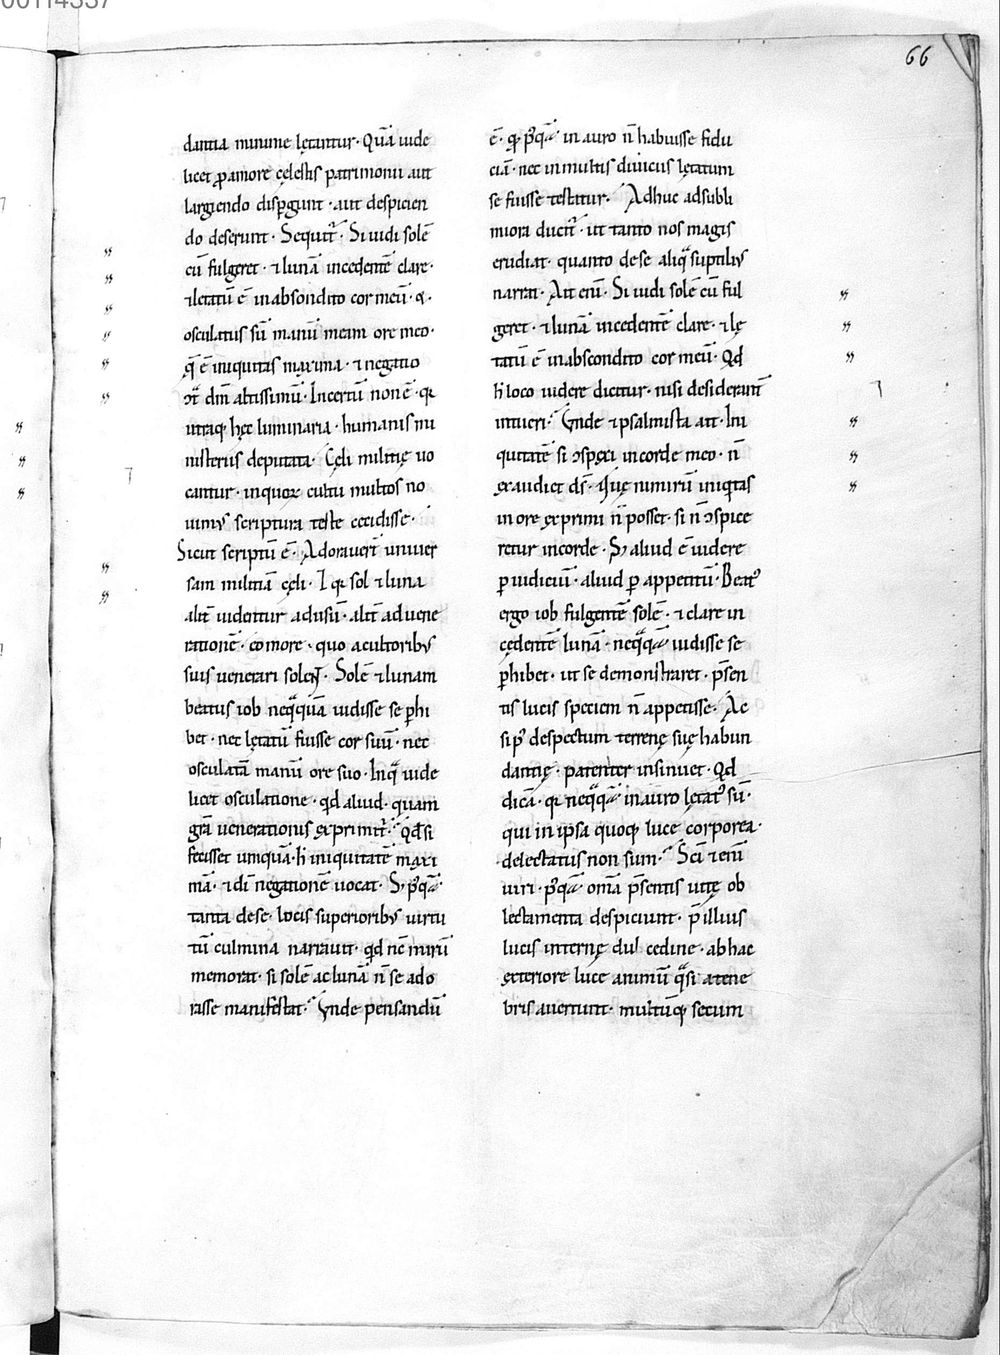 00114337
66
dantia minime lętantur· Quā uide
licet ꝓ amore cęlestis patrimonii aut
largiendo disꝑgunt· aut despicien
do deserunt· Sequit̄· Si uidi solē
cū fulgeret· ⁊ lunā incedentē clare·
⁊ lętatū ē in absondito cor meū· ⁊
osculatus sū manū meam ore meo·
q̄ ē iniquitas maxima· ⁊ negatio
ↄt̄ dm̄ altissimū· Incertū non ē· qꝛ
utraq· hęc luminaria· humanis mi
nisteriis deputata· Cęli militię uo
cantur· in quoꝝ cultu multos no
uimꝰ scriptura teste cecidisse·
Sicut scriptū ē· Adorauer̄ uniuer
sam militiā cęli· I qꝛ sol ⁊ luna
alit̄ uidentur ad usū· alit̄ ad uene
rationē· eo more· quo a cultoribꝰ
suis uenerari solent· Solē ⁊ lunam
beatus iob neq̄quā uidisse se ꝑhi
bet· nec lętatū fuisse cor suū· nec
osculatā manū ore suo· In q̄ uide
licet osculatione· qd aliud· quam
gr̄a uenerationis exprimit̄· Qd si
fecisset umquā· h̄ iniquitatē maxi
mā· ⁊ dī negationē uocat· S; pꝰq̄
tanta de se· locis superioribꝰ uirtu
tū culmina narrauit· qd nē mirū
memorat· si solē ac lunā n̄ se ado
rasse manifestat· Vnde pensandū
ē· qꝛ pꝰq̄ in auro n̄ habuisse fidu
ciā· nec in multis diuiciis lętatum
se fuisse testatur· Adhuc ad subli
miora ducit̄· ut tanto nos magis
erudiat· quanto de se aliq̄ suptiliꝰ
narrat· Ait enī· Si uidi solē cū ful
geret· ⁊ lunā incedentē clare· ⁊ lę
tatū ē in abscondito cor meū· Qd
h̄ loco uidere dicitur· nisi desiderant̄
intueri· Vnde ⁊ psalmista ait· Ini
quitatē si ↄspexi in corde meo· n̄
exaudiet dS· Quę nimirū iniqtas
in ore exprimi n̄ posset· si n̄ ↄspice
retur in corde· S; aliud ē uidere
ꝑ iudiciū· aliud ꝑ appetitū· Beatꝰ
ergo iob fulgentē solē· ⁊ clare in
cędentē lunā· neq̄q̄ uidisse se
ꝑhibet· ut se demonstraret· p̄sen
tis lucis speciem n̄ appetisse· Ac
si pꝰ despectum terrenę suę habun
dantię· patenter insinuet· Qd
dicā· qꝛ neq̄q̄ in auro lętatꝰ sū·
qui in ipsa quoq luce corporea·
delectatus non sum· Sci ⁊ enī
uiri· pꝰq̄ om̄a p̄sentis uitę ob
lectamenta despiciunt· p̄ illius
lucis internę dul cedine· ab hac
exteriore luce animū q̄si a tene
bris auertunt· multūq secum